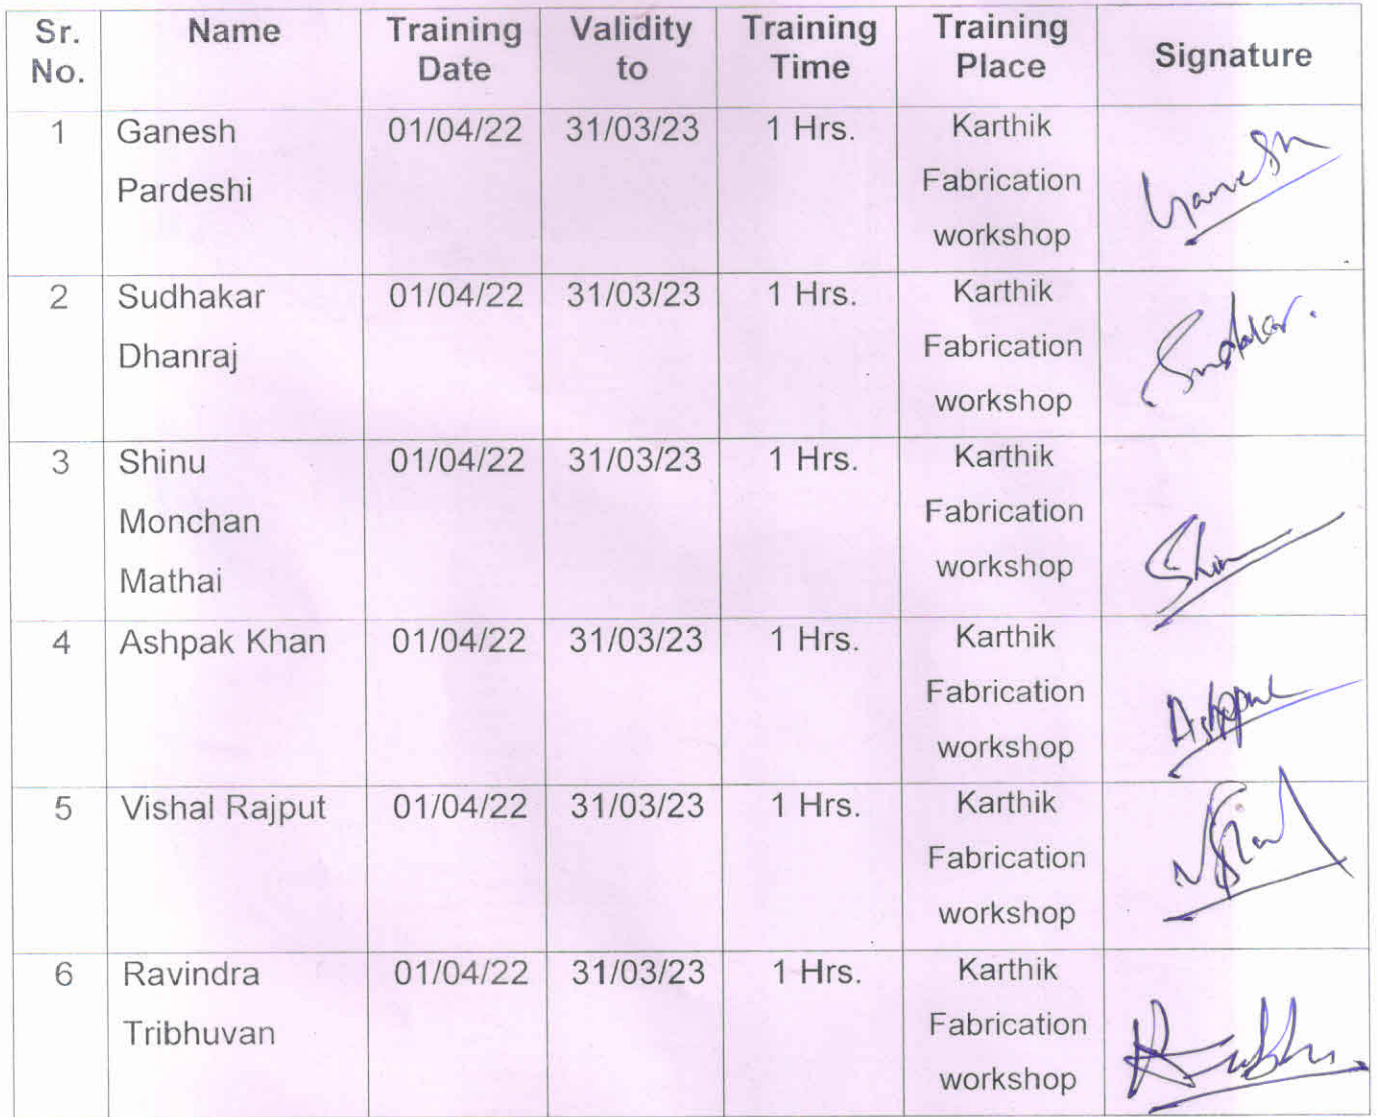 Sr. No. Name Training Date Validity to Training Time Training Place Signature
1 Ganesh Pardeshi 01/04/22 31/03/23 1 Hrs. Karthik Fabrication workshop Ganesh
2 Sudhakar Dhanraj 01/04/22 31/03/23 1 Hrs. Karthik Fabrication workshop
3 Shinu Monchan Mathai 01/04/22 31/03/23 1 Hrs. Karthik Fabrication workshop
4 Ashpak Khan 01/04/22 31/03/23 1 Hrs. Karthik Fabrication workshop
5 Vishal Rajput 01/04/22 31/03/23 1 Hrs. Karthik Fabrication workshop
6 Ravindra Tribhuvan 01/04/22 31/03/23 1 Hrs. Karthik Fabrication workshop